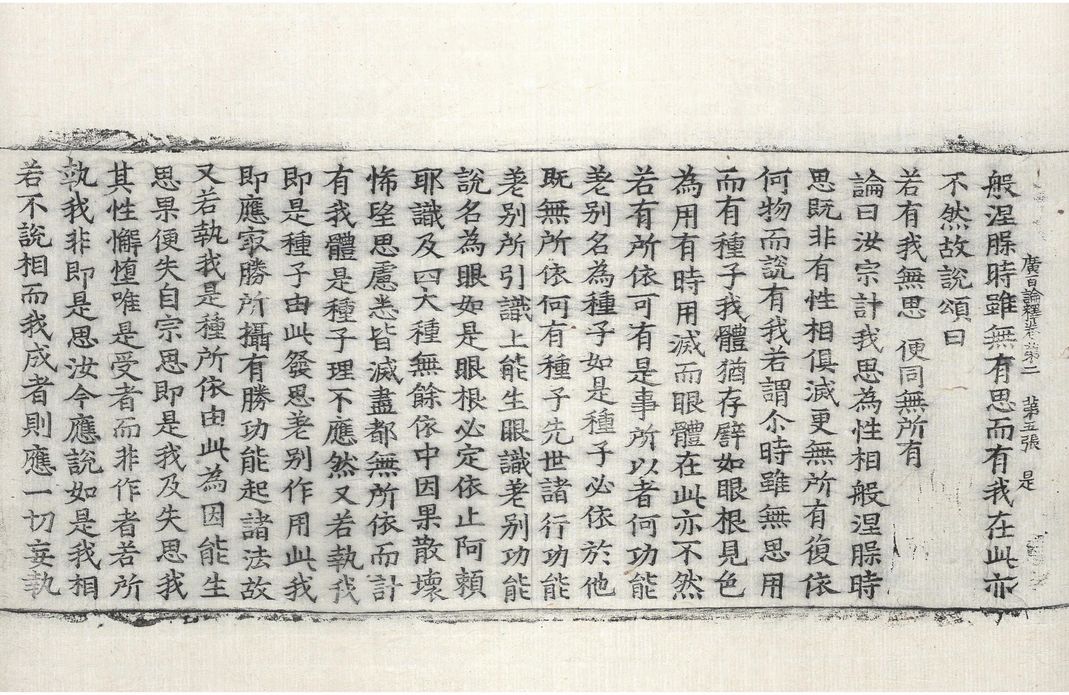 廣百論釋卷第二　第五張　是
般涅槃時雖無有思而有我在此亦
不然故說頌曰
若有我無思　便同無所有
論曰汝宗計我思為性相般涅槃時
思既非有性相俱滅更無所有復依
何物而說有我若謂尒時雖無思用
而有種子我體猶存譬如眼根見色
為用有時用滅而眼體在此亦不然
若有所依可有是事所以者何功能
差別名為種子如是種子必依於他
既無所依何有種子先世諸行功能
差別所引識上能生眼識差別功能
說名為眼如是眼根必定依止阿賴
耶識及四大種無餘依中因果散壞
悕望思慮悉皆滅盡都無所依而計
有我體是種子理不應然又若執我
即是種子由此發思差別作用此我
即應㝡勝所攝有勝功能起諸法故
又若執我是種所依由此為因能生
思果便失自宗思即是我及失思我
其性懈憻唯是受者而非作者若所
執我非即是思汝今應說如是我相
若不說相而我成者則應一切妄執